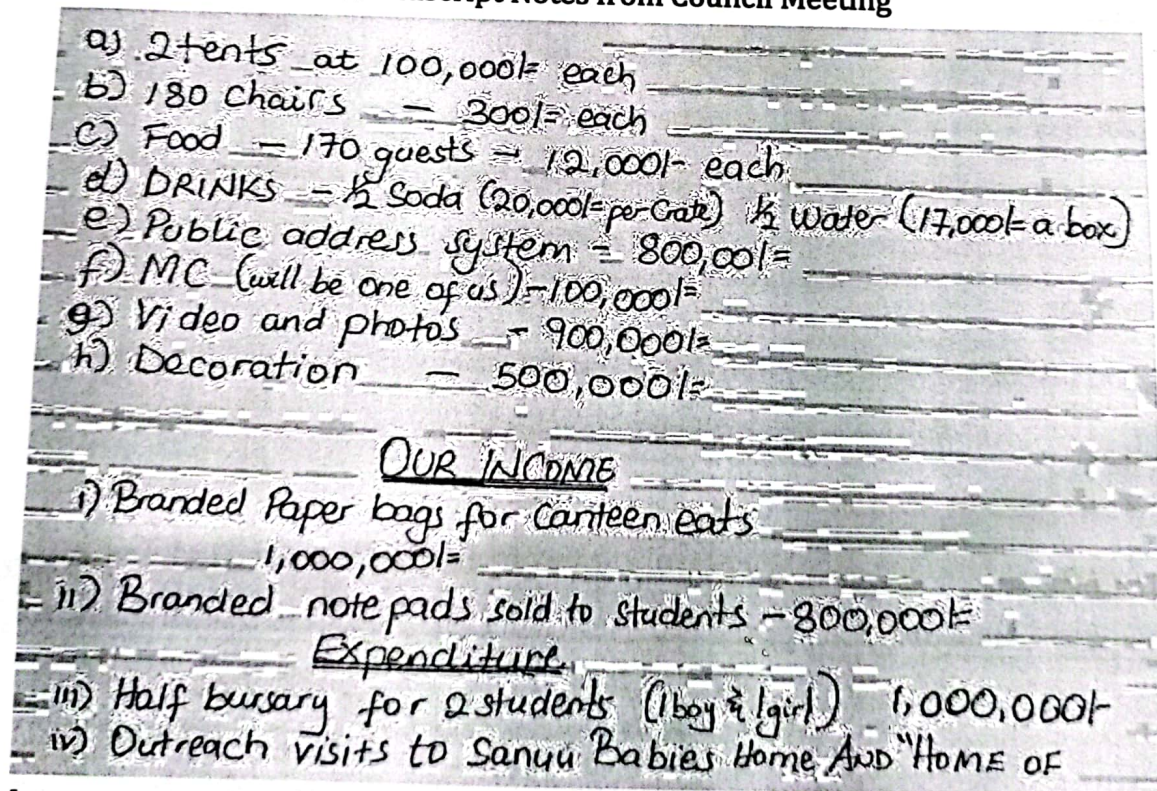 script Notes from Council Meeting
a) 2 tents at 100,000/= each
b) 180 Chairs — 300/= each
c) Food — 170 guests = 12,000/- each
d) DRINKS — ½ Soda (20,000/= per Crate) ½ Water (17,000/= a box)
e) Public address system = 800,00/=
f) MC (will be one of us) - 100,000/=
g) Video and photos — 900,000/=
h) Decoration — 500,000/=
OUR INCOME
i) Branded Paper bags for Canteen eats
1,000,000/=
ii) Branded note pads sold to students — 800,000/=
Expenditure
iii) Half bursary for 2 students (1boy & 1girl) 1,000,000/-
iv) Outreach visits to Sanyu Babies Home AND "HOME OF